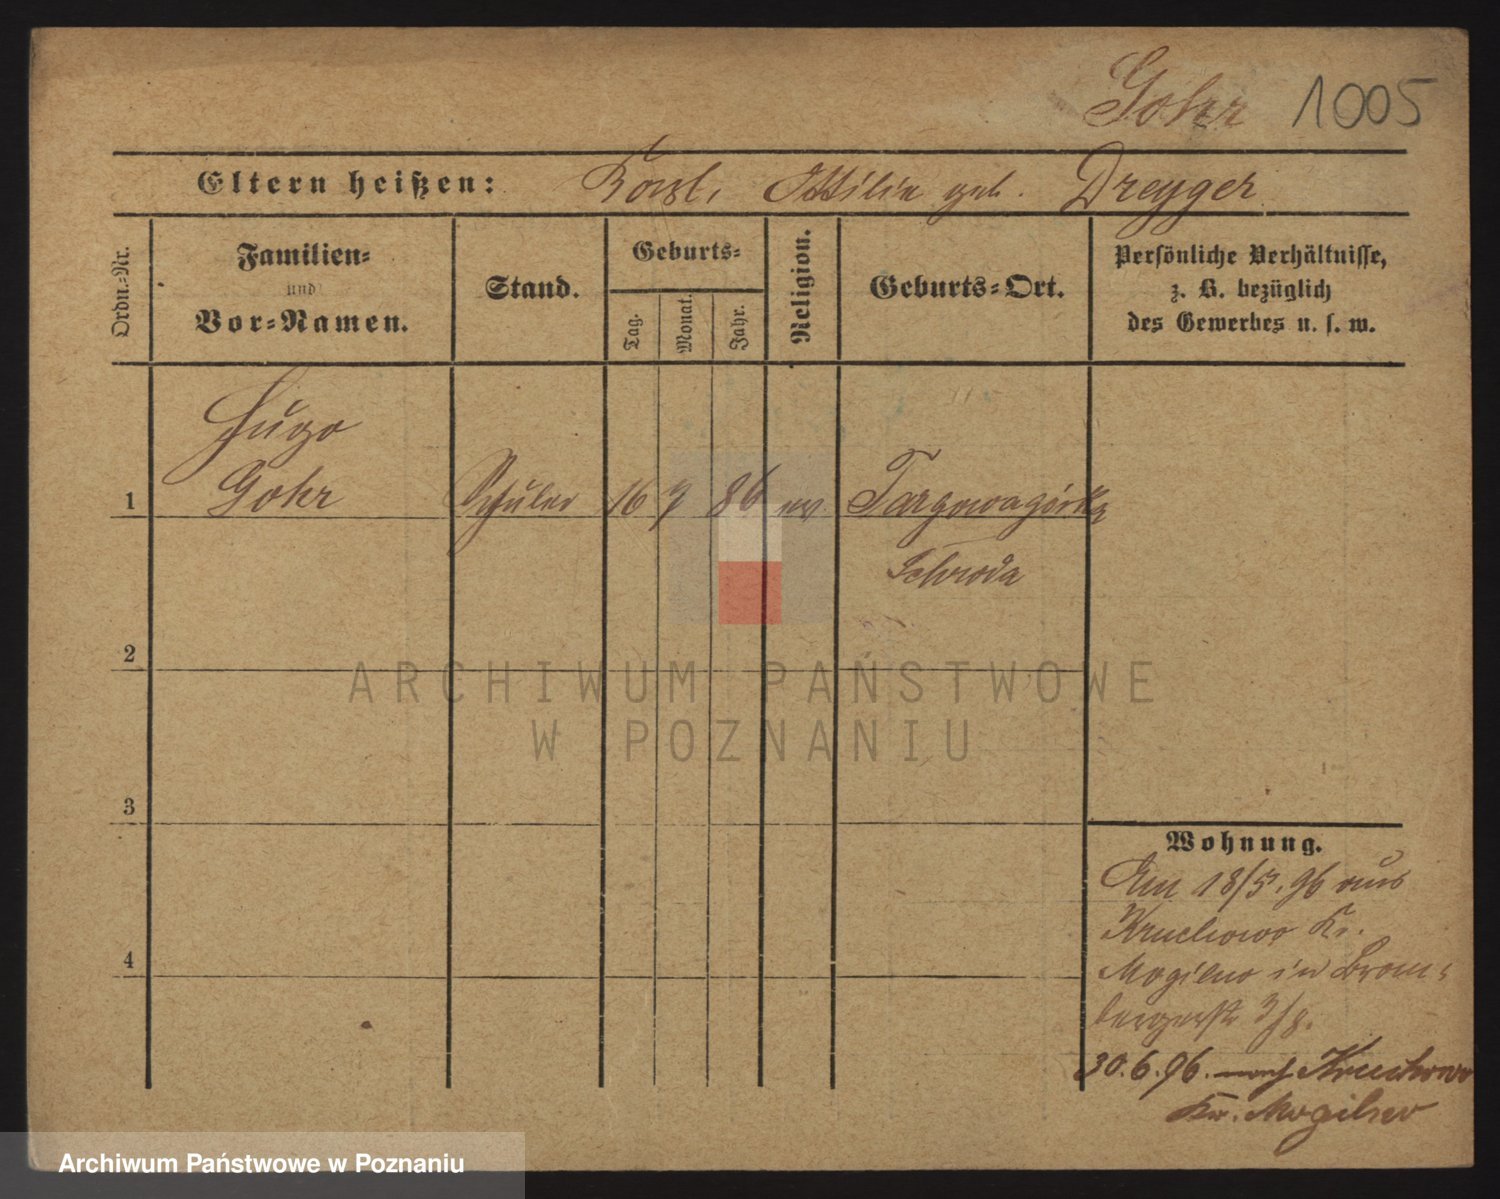 Gohr 1005
Eltern heißen: Karl, Ottilie geb. Dreyger
Ordn.-Nr.
Familien-
und
Vor-Namen.
Stand.
Geburts-
Tag.
Monat.
Jahr.
Religion.
Geburts-Ort.
Persönliche Verhältnisse,
z. B. bezüglich
des Gewerbes u. s. w.
Hugo
1 Gohr Schüler 16 7 86 ev Targowagórka
Schroda
2
3
4
ARCHIWUM PAŃSTWOWE
W POZNANIU
Wohnung.
Am 18/5. 96 aus
Kruchowo Kr.
Mogilno in Brom-
bergerstr 3/8.
30.6.96. nach Kruchowo
Kr. Mogilno
Archiwum Państwowe w Poznaniu